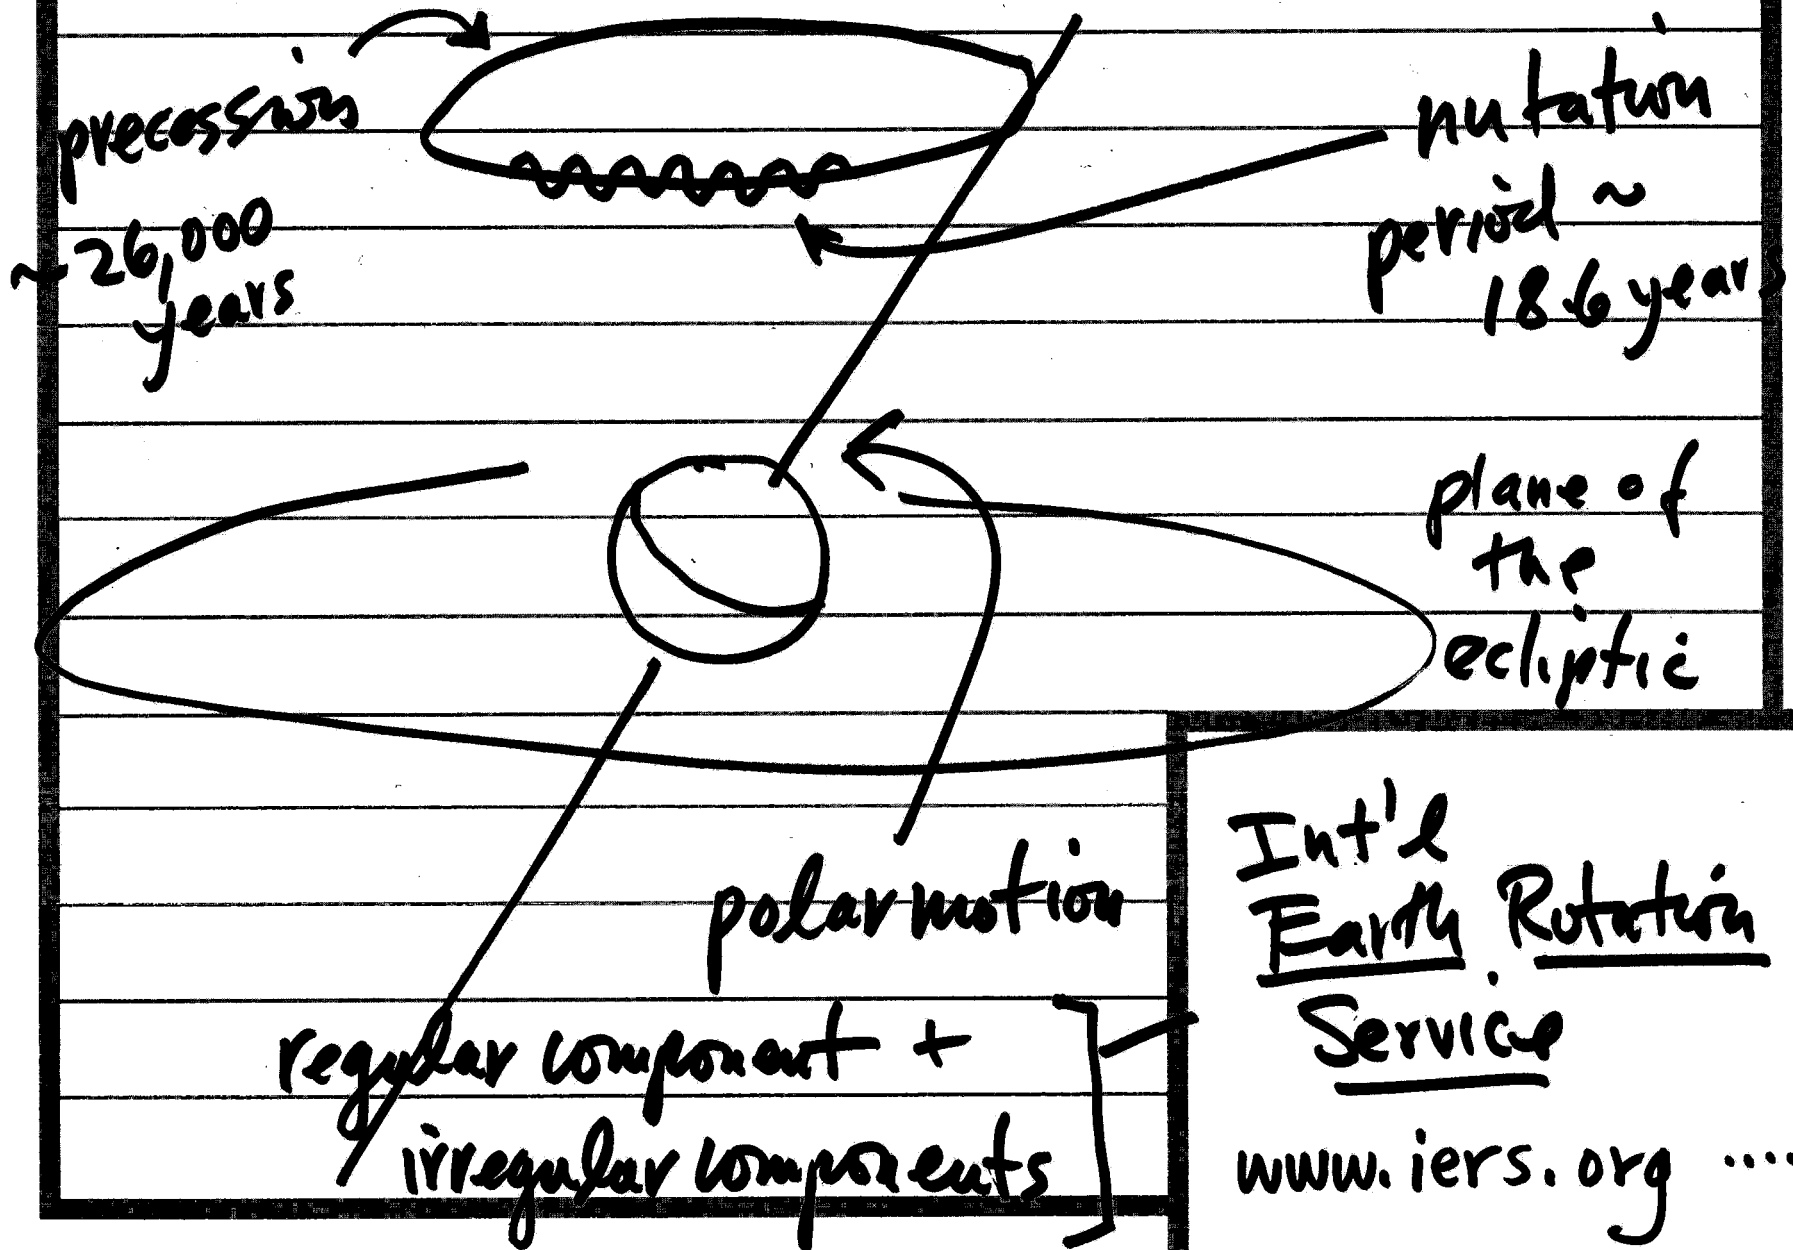 precession
~ 26,000
years
nutation
period ~
18.6 years
plane of
the
ecliptic
polar motion
regular component +
irregular components
Int'l
Earth Rotation
Service
www.iers.org ....